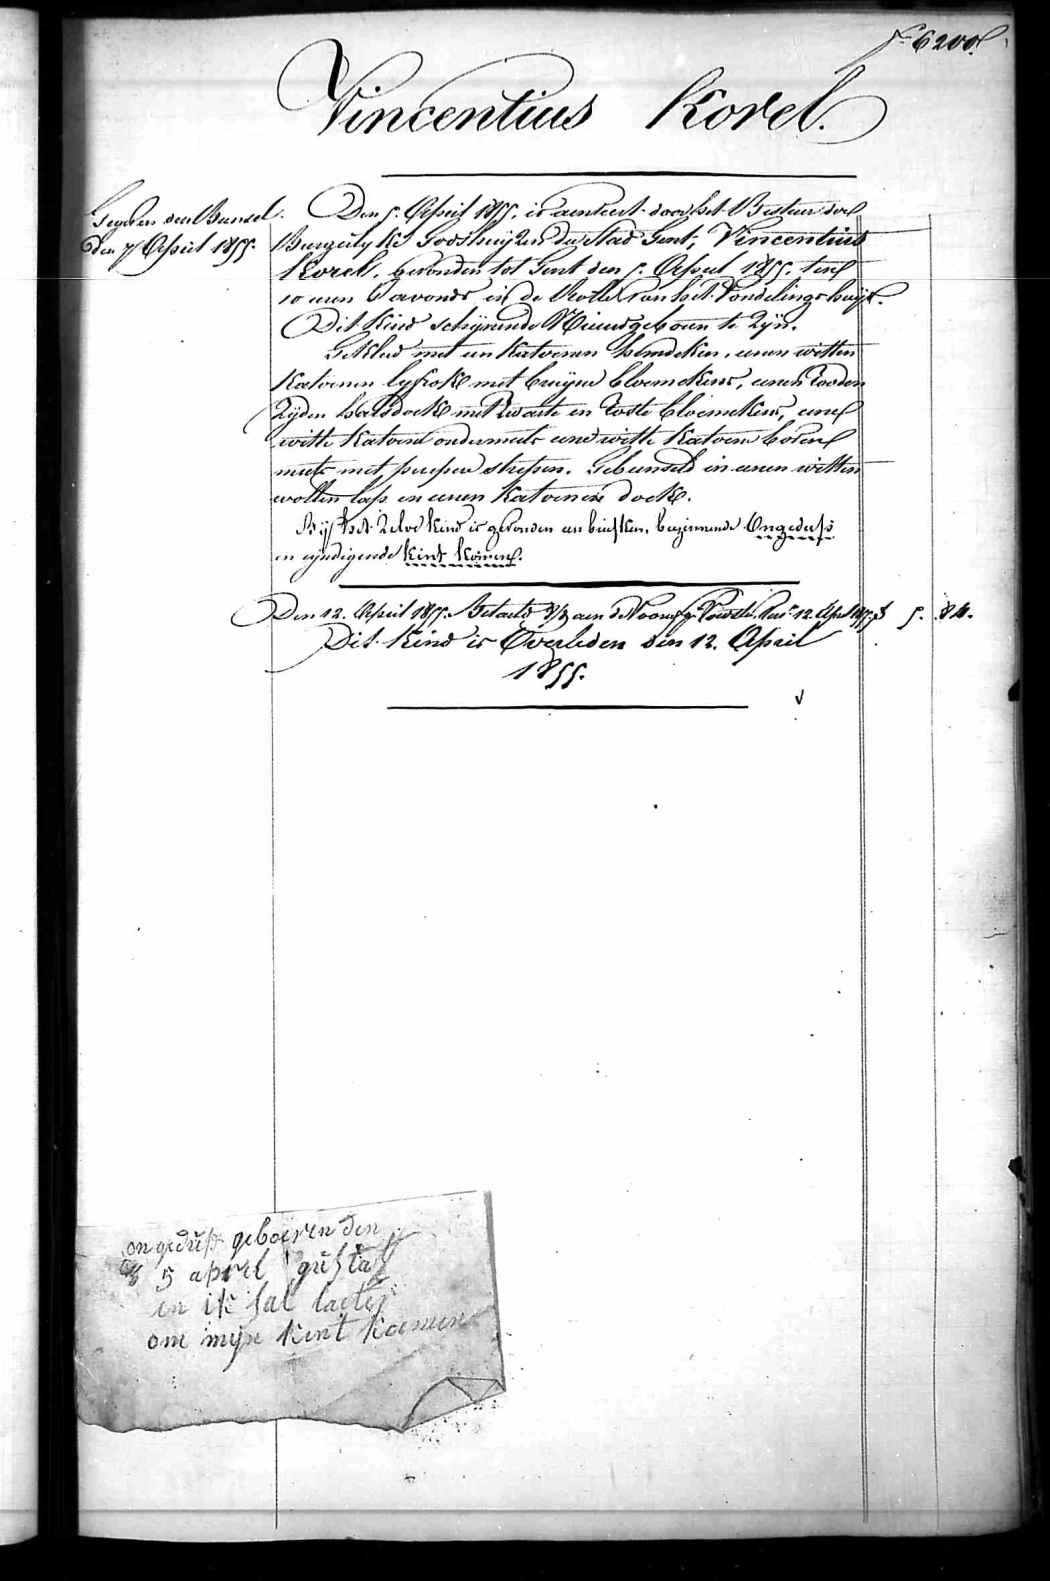 Fº 6200.
Vincentius Korel.
Gegeven den Bundel
den 7 April 1855.
Den 5. April 1855. is aenveert door het Bestuer der
Burgerlyke Godshuyzen der stad Gent, Vincentius
Korel, gevonden tot Gent den 5. April 1855. ten
10 uren 's avonds in de Rolle van het Vondelingshuys.
Dit Kind schynende Nieuwgeboren te zyn.
Gekleed met een Katoenen hemdeken, eenen witten
Katoenen lyfrok met bruyne bloemekens, eenen rooden
zyden halsdoek met zwarte en roste bloemekens, eene
witte Katoene ondermuts eene witte Katoene boven
muts met purpere strepen. Gebunseld in eenen witten
wollen lap en eenen Katoenen doek.
By het zelve kind is gevonden een briefken, beginnende Ongedupt
en eyndigende kint komen.
Den 12. April 1855. Betaeld aen de Voorz. 12. April 1855 5. 84.
Dit Kind is Overleden den 12. April
1855.
ongedupt geboeren den
5 april gustaf
en ik sal laeter
om mijn kint koemen